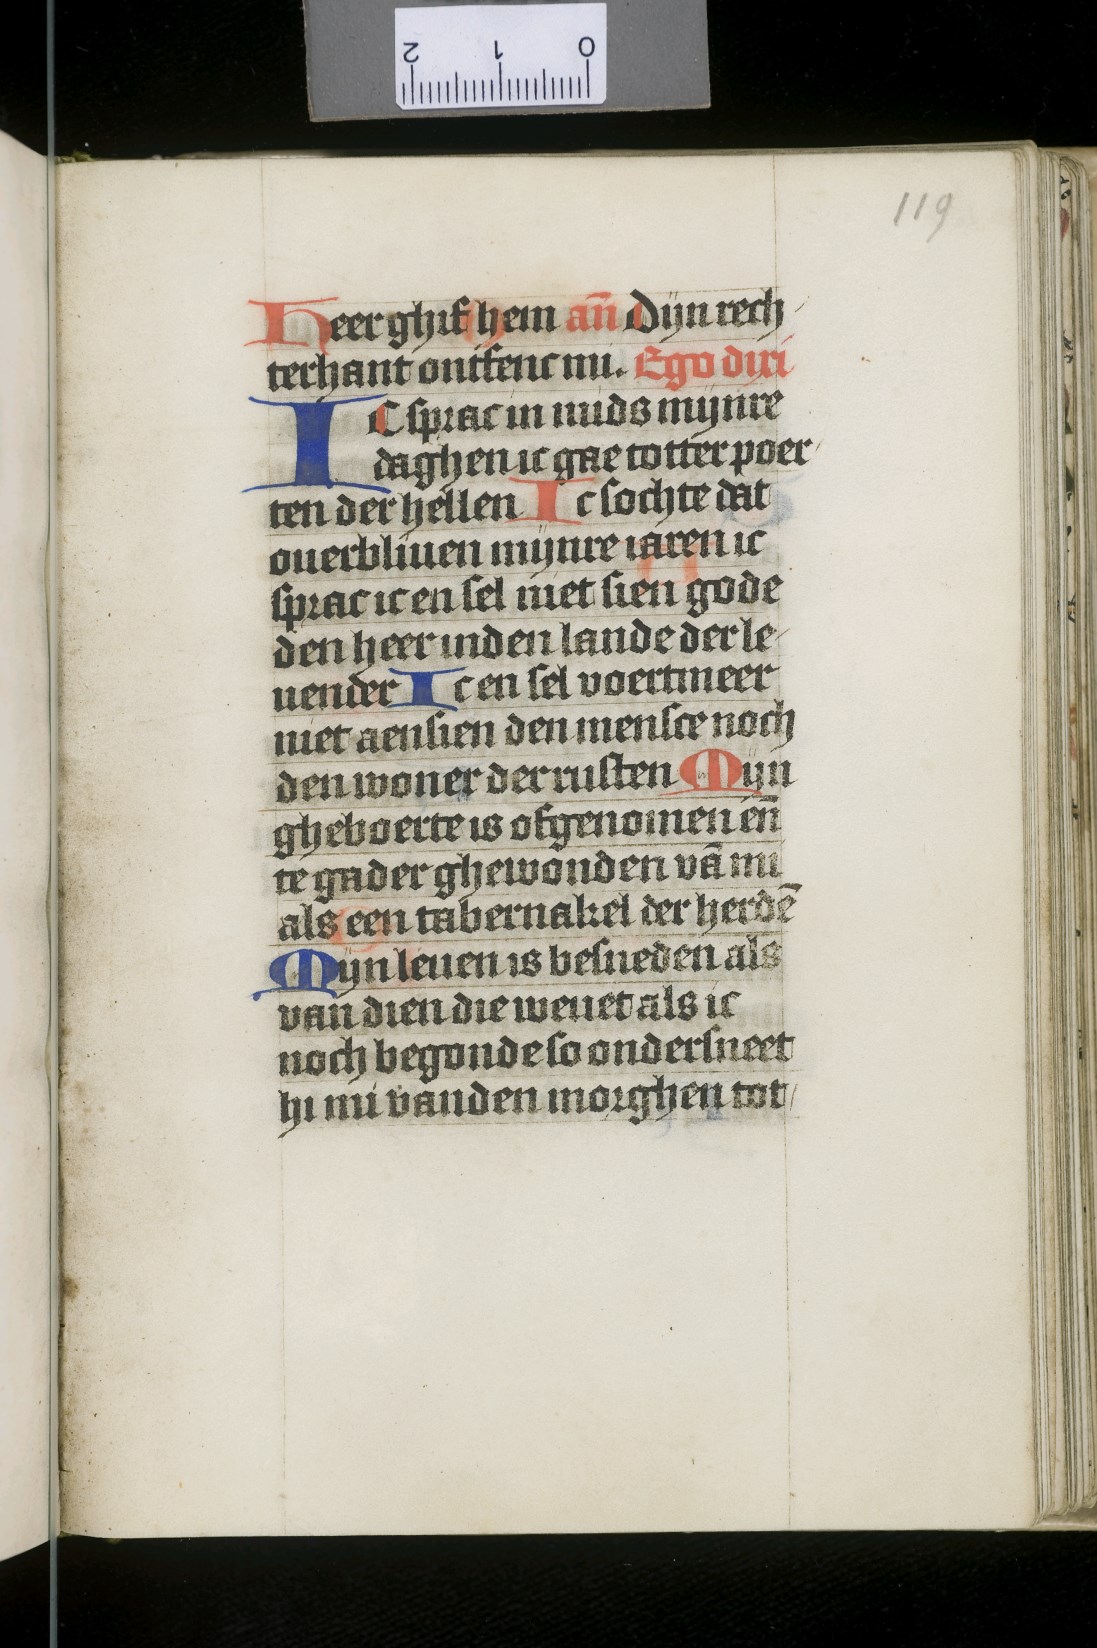 119
Heer ghif hem an̄ Dijn rech
terhant ontfenc mi. Ego dixi
IC sprac in mids mijnre
daghen ic gae totter poer
ten der hellen Ic sochte dat
ouerbliuen mijnre iaren ic
sprac ic en sel niet sien gode
den heer inden lande der le
uender Ic en sel voertmeer
niet aensien den mensce noch
den woner der rusten Mijn
gheboerte is ofgenomen en̄
te gader ghewonden vā mi
als een tabernakel der herdē
Mijn leuen is besneden als
van dien die weuet als ic
noch begonde so ondersneet
hi mi vanden morghen tot